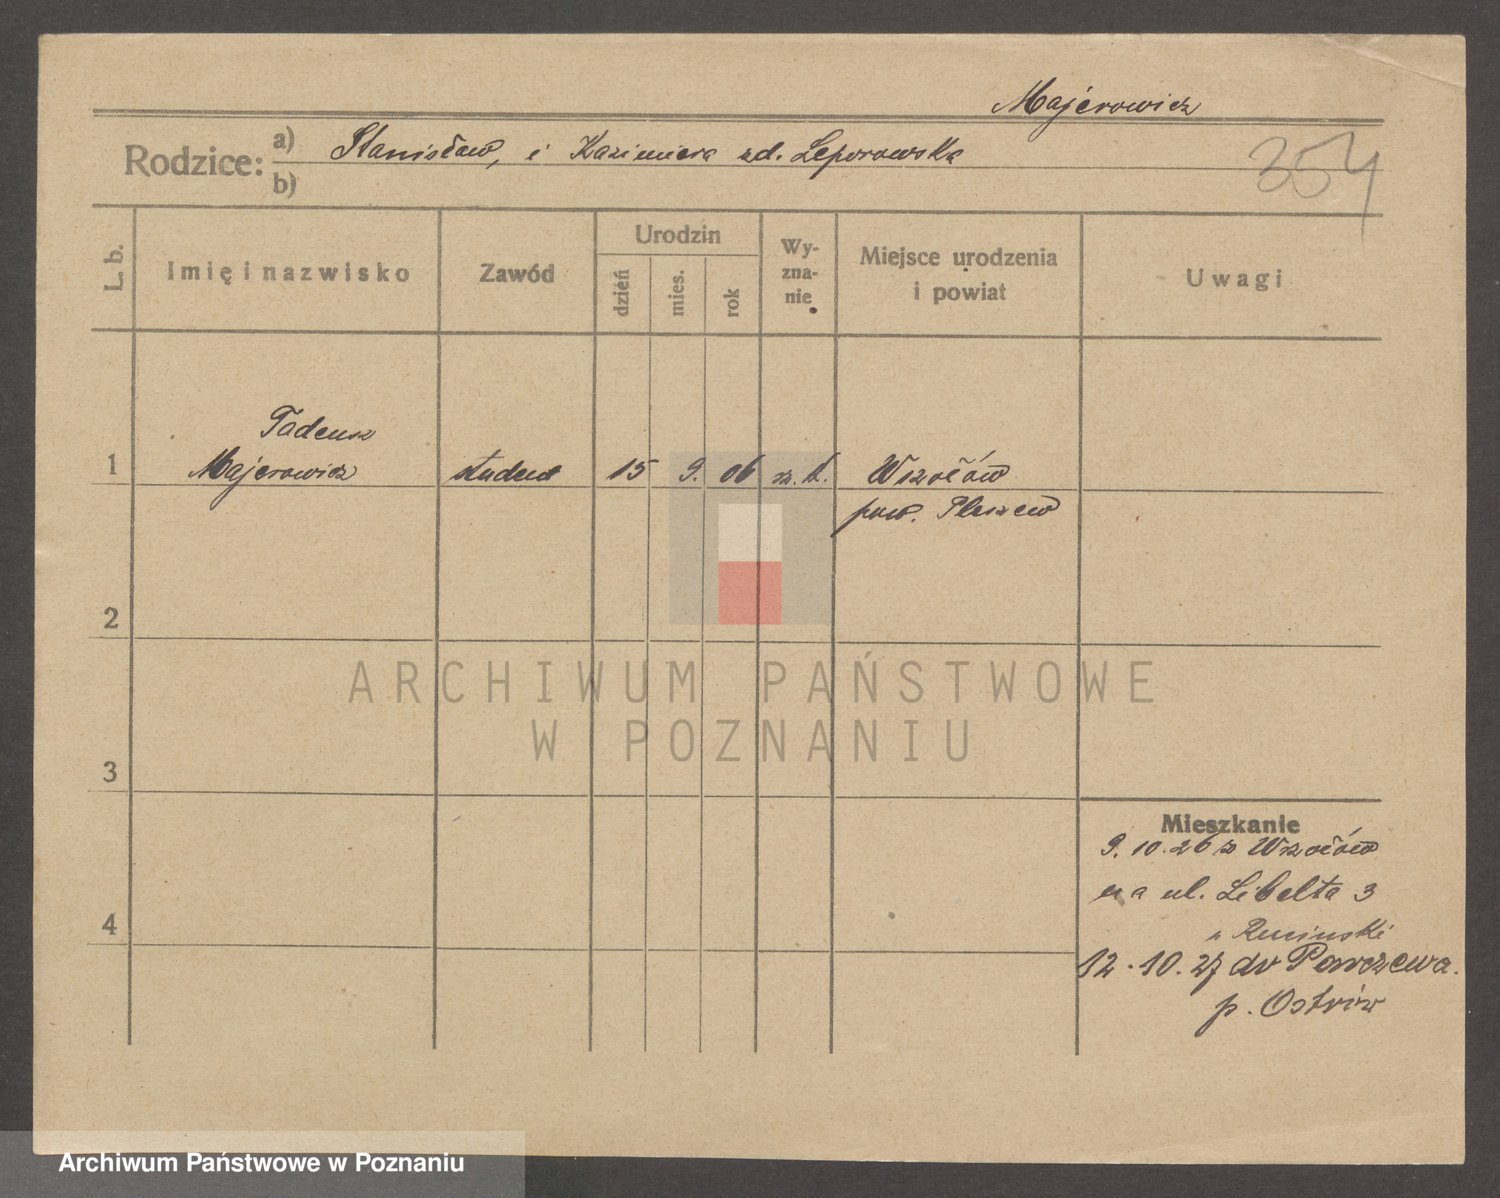 Majerowicz
Rodzice: a) Stanisław, i Kazimiera zd. Leporowska
b)
354
L. b.
Imię i nazwisko
Zawód
Urodzin
dzień
mies.
rok
Wy-
zna-
nie
Miejsce urodzenia
i powiat
Uwagi
Tadeusz
1 Majerowicz student 15 9. 06 rz. k. Wszołów
pow. Pleszew
2
ARCHIWUM PAŃSTWOWE
W POZNANIU
3
Mieszkanie
9. 10. 26 z Wszołów
na ul. Libelta 3
u Rucinski
4
12. 10. 27 do Parczewa.
p. Ostrów
Archiwum Państwowe w Poznaniu